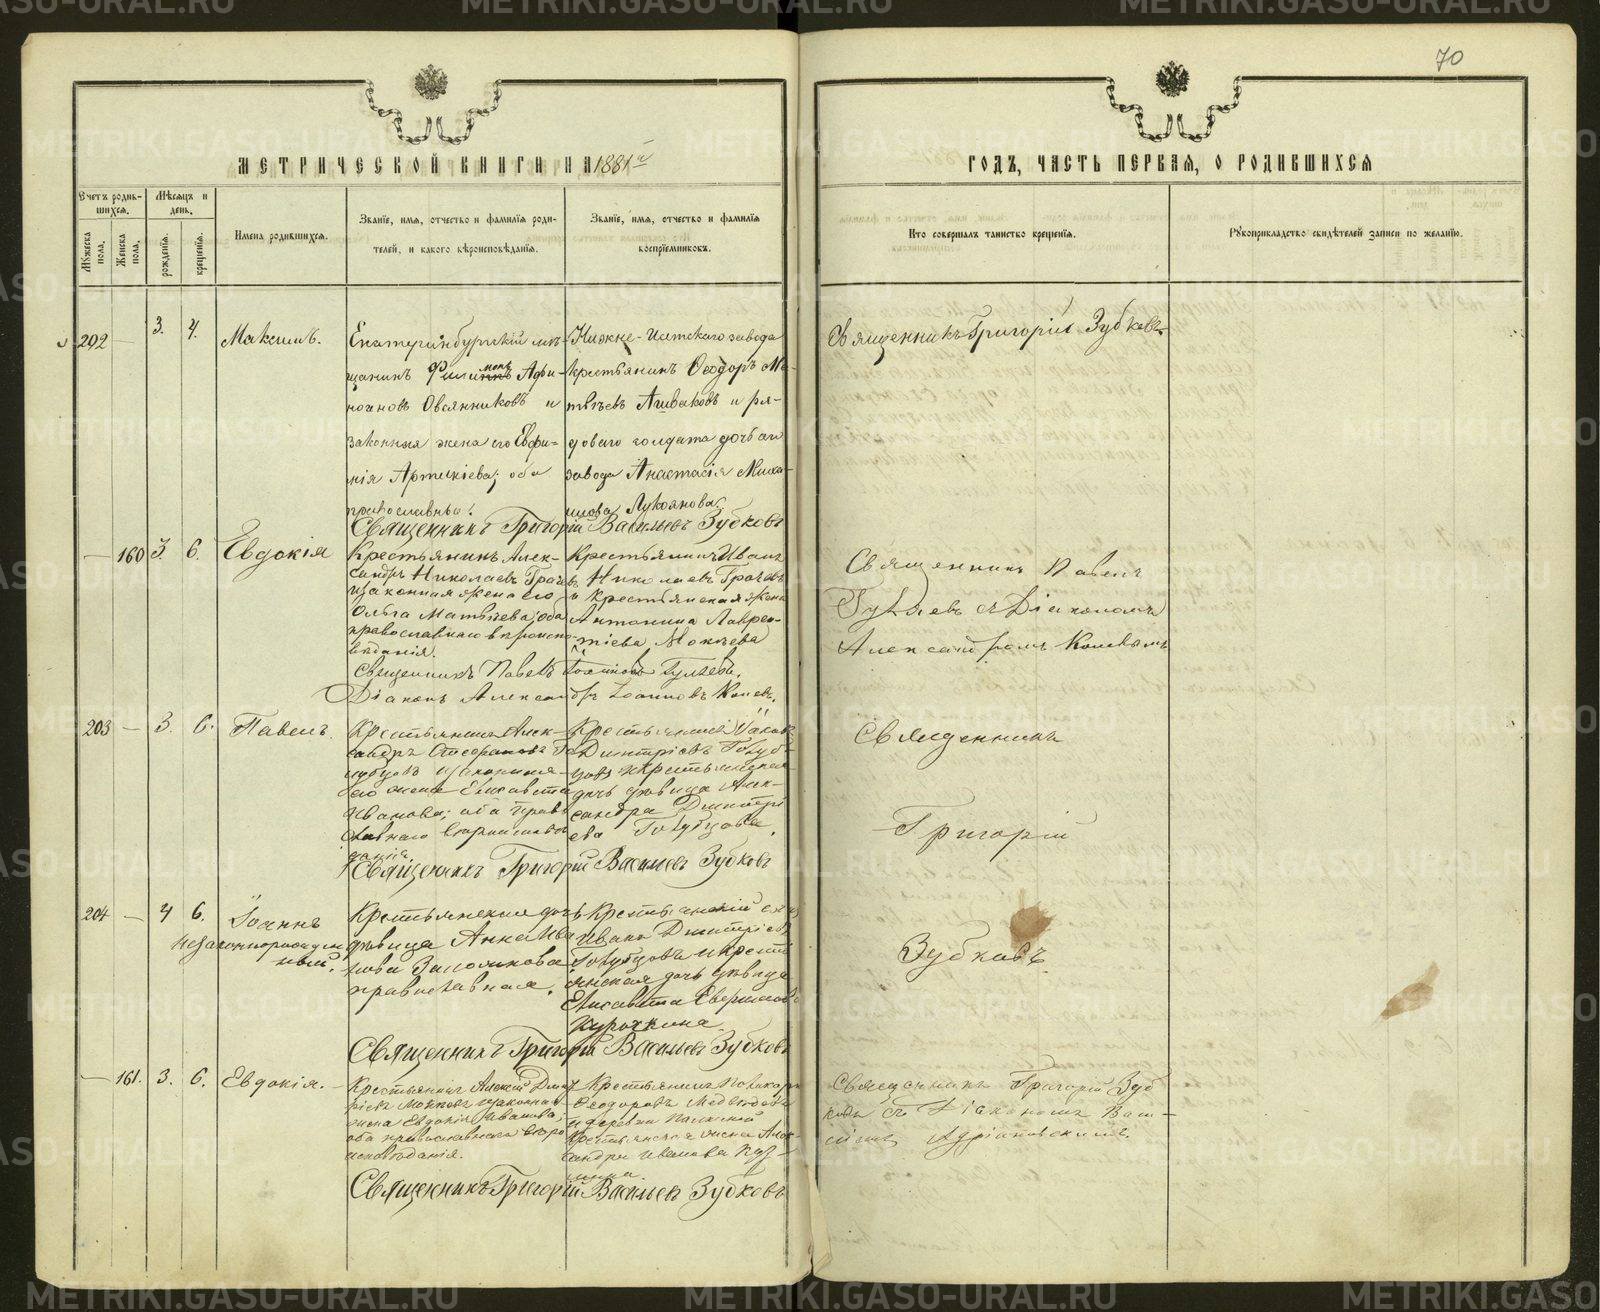 70
МЕТРИЧЕСКОЙ КНИГИ НА 1881й
ГОДЪ, ЧАСТЬ ПЕРВАЯ, О РОДИВШИХСЯ
Счетъ родившихся.
Мѣсяцъ и день.
Мужеска пола.
Женска пола.
рожденія.
крещенія.
Имена родившихся.
Званіе, имя, отчество и фамилія родителей, и какого вѣроисповѣданія.
Званіе, имя, отчество и фамилія воспріемниковъ.
Кто совершалъ таинство крещенія.
Рукоприкладство свидѣтелей записи по желанію.
202 — 3. 4. Максимъ.
Екатеринбургскій мѣ-
щанинъ
Овсянниковъ и
законная жена его Евфи-
мія Артемiева; оба
православны.
Нижне-Исетскаго завода
крестьянинъ Ѳеодоръ Ма-
твѣевъ и ря-
доваго солдата дочь
завода Анастасія Миха-
илова Лукоянова.
Священникъ Григорій Зубковъ.
Священникъ Григорій Васильевъ Зубковъ
— 160 3. 6. Евдокія
Крестьянинъ Алек-
сандръ Николаевъ Грачевъ
и законная жена его
Ольга Матвѣева; оба
православнаго вѣроиспо-
вѣданія.
Крестьянинъ Иванъ
Николаевъ Грачевъ
и крестьянская жена
Антонина Лаврен-
тіева Мокѣева
Священникъ Павелъ
Гуляевъ съ Діакономъ
Александромъ Коневымъ
Священникъ Павелъ Іоанновъ Гуляевъ.
Діаконъ Александръ Іоанновъ Коневъ.
203 — 3. 6. Павелъ.
Крестьянинъ Алек-
сандръ Го-
лубцовъ и законная
его жена Елисавета
Иванова; оба право-
славнаго вѣроисповѣ-
данія.
Крестьянинъ Іаковъ
Димитріевъ Голуб-
цовъ и крестьянская
дочь дѣвица Алек-
сандра Димитрі-
ева Голубцова.
Священникъ
Григорій
Зубковъ.
Священникъ Григорій Васильевъ Зубковъ
204 — 4 6. Іоаннъ
незаконнорожден-
ный.
Крестьянская дочь
дѣвица Анна Ива-
нова
православная.
Крестьянскій сынъ
Иванъ Димитріевъ
Голубцовъ и крестья-
янская дочь дѣвица
Елисавета
Курочкина.
Священникъ Григорій Васильевъ Зубковъ
— 161. 3. 6. Евдокія.
Крестьянинъ Алексій Димит-
ріевъ и законная
жена Евдокія Иванова;
оба православнаго вѣро-
исповѣданія.
Крестьянинъ
Ѳеодоровъ Медвѣдевъ
и деревни
крестьянская жена Алек-
сандра Иванова Куз-
мина.
Священникъ Григорій Зуб-
ковъ съ Діакономъ Васи-
ліемъ Адріановскимъ.
Священникъ Григорій Васильевъ Зубковъ